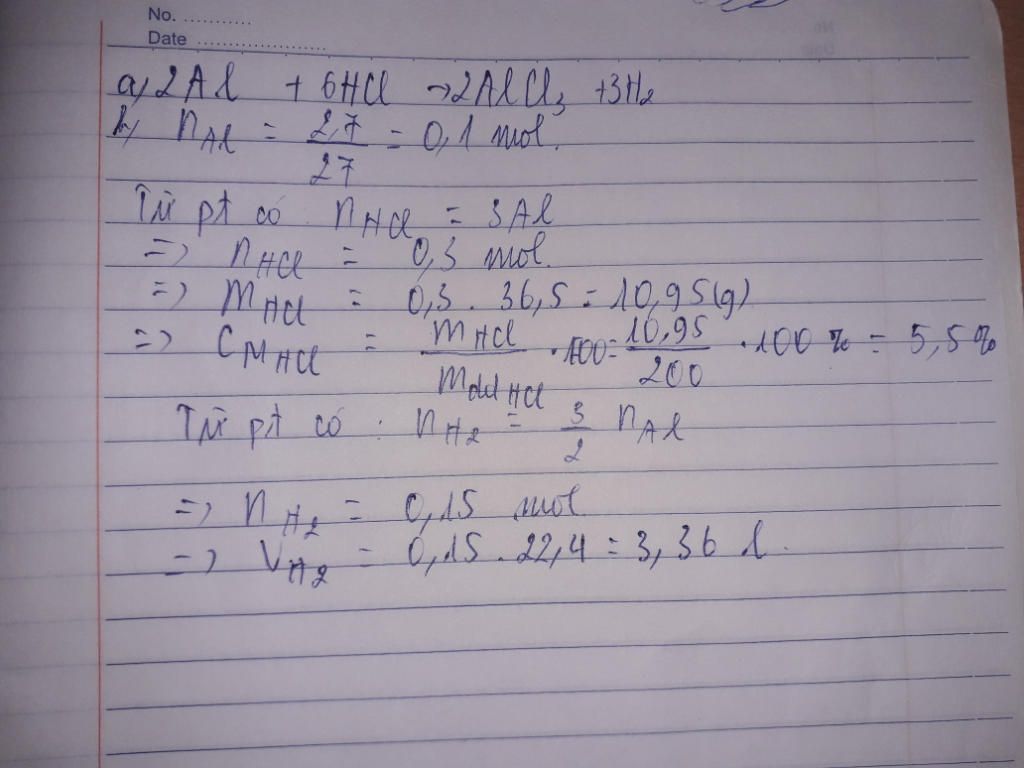 No. ...........
Date ......................
a, 2Al + 6HCl → 2AlCl₃ + 3H₂
b, nAl = 2,7/27 = 0,1 mol.
Từ pt có nHCl = 3Al
=> nHCl = 0,3 mol.
=> mHCl = 0,3 . 36,5 = 10,95(g)
=> CM HCl = mHCl/mdd HCl . 100 = 10,95/200 . 100 % = 5,5 %
Từ pt có : nH₂ = 3/2 nAl
=> nH₂ = 0,15 mol
=> VH₂ = 0,15 . 22,4 = 3,36 l.